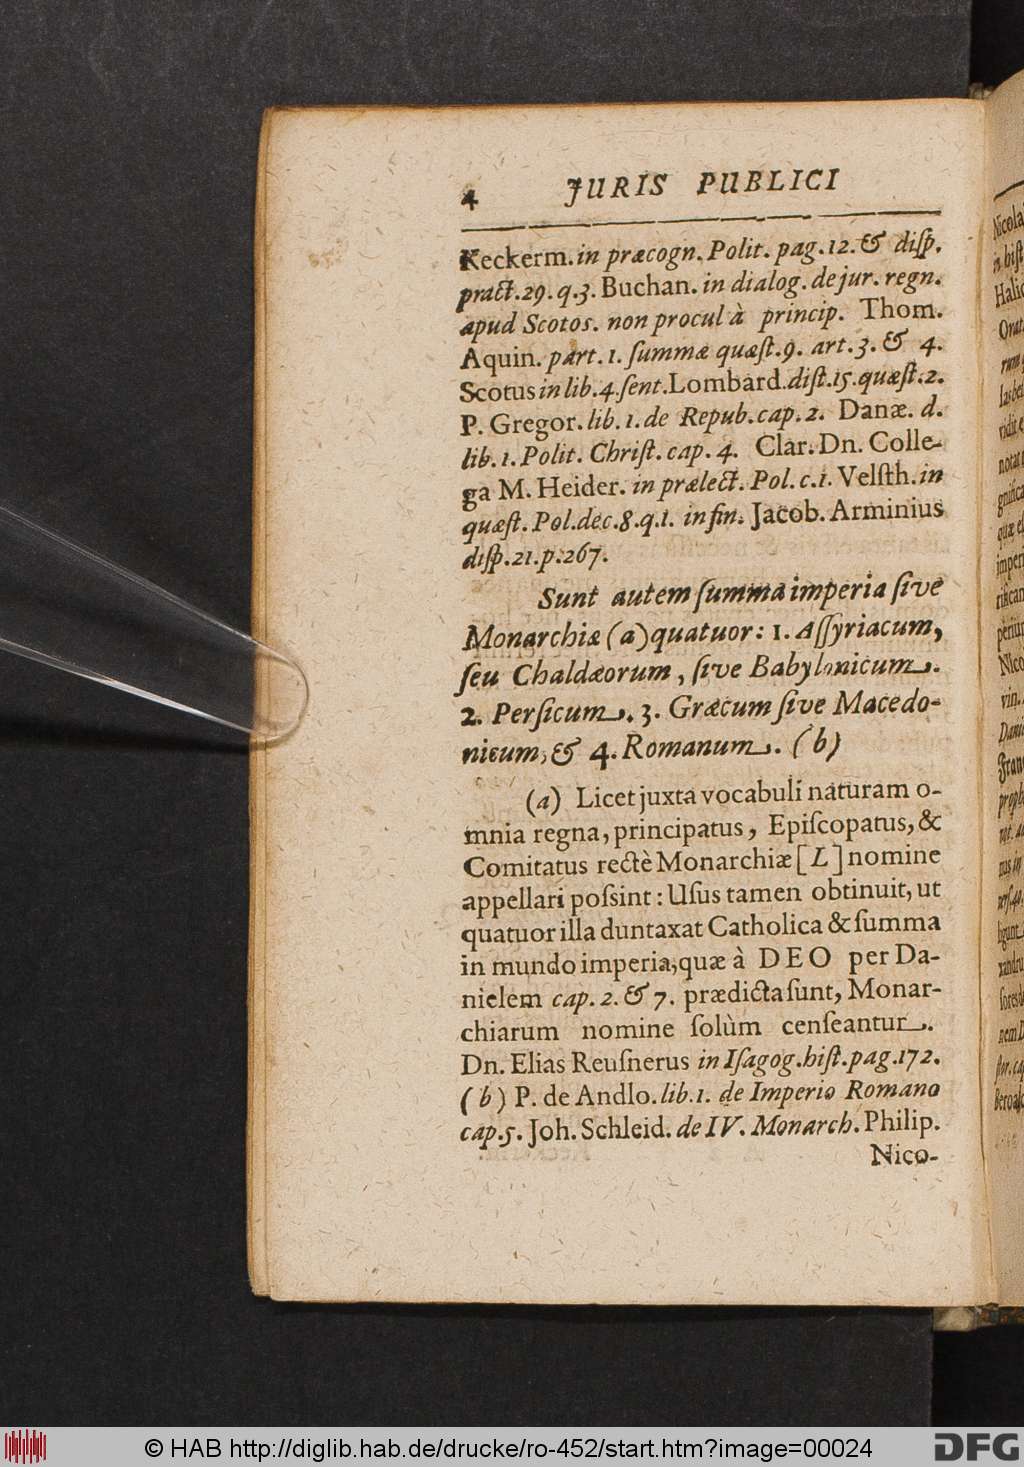 4 JURIS PUBLICI
Keckerm. in præcogn. Polit. pag. 12. & diſp.
pract. 29. q. 3. Buchan. in dialog. de jur. regn.
apud Scotos. non procul à princip. Thom.
Aquin. part. 1. ſummæ quæſt. 9. art. 3. & 4.
Scotus in lib. 4. ſent. Lombard. diſt. 15. quæſt. 2.
P. Gregor. lib. 1. de Repub. cap. 2. Danæ. d.
lib. 1. Polit. Chriſt. cap. 4. Clar. Dn. Colle-
ga M. Heider. in prælect. Pol. c. 1. Velſth. in
quæſt. Pol. dec. 8. q. 1. in fin. Jacob. Arminius
diſp. 21. p. 267.
Sunt autem ſumma imperia ſive
Monarchiæ (a) quatuor: 1. Aſſyriacum,
ſeu Chaldæorum, ſive Babylonicum.
2. Perſicum. 3. Græcum ſive Macedo-
nicum, & 4. Romanum. (b)
(a) Licet juxta vocabuli naturam o-
mnia regna, principatus, Epiſcopatus, &
Comitatus rectè Monarchiæ [L] nomine
appellari poſsint: Uſus tamen obtinuit, ut
quatuor illa duntaxat Catholica & ſumma
in mundo imperia, quæ à DEO per Da-
nielem cap. 2. & 7. prædicta ſunt, Monar-
chiarum nomine ſolùm cenſeantur.
Dn. Elias Reuſnerus in Iſagog. hiſt. pag. 172.
(b) P. de Andlo. lib. 1. de Imperio Romano
cap. 5. Joh. Schleid. de IV. Monarch. Philip.
Nico-
© HAB http://diglib.hab.de/drucke/ro-452/start.htm?image=00024
DFG